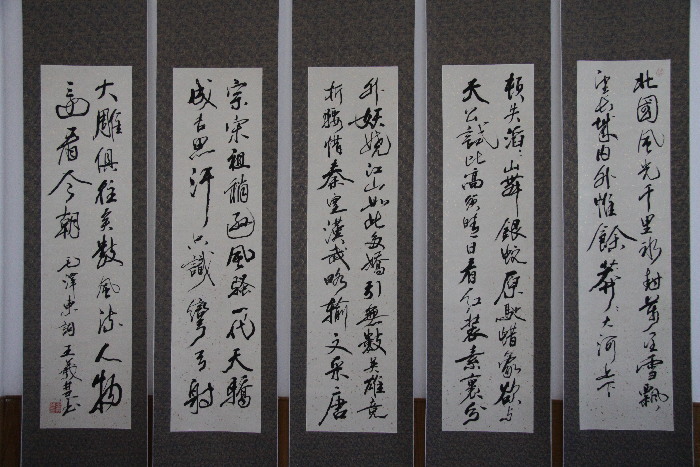 北國風光千里冰封萬里雪飄
望長城内外惟餘莽〻大河上下
頓失滔〻山舞銀蛇原馳蜡象欲与
天公試比高須晴日看红装素裹分
外妖嬈江山如此多嬌引無數英雄竞
折腰惜秦皇漢武略输文采唐
宗宋祖稍遜風騷一代天驕
成吉思汗只識彎弓射
大雕俱往矣數風流人物
還看今朝 毛澤東詞